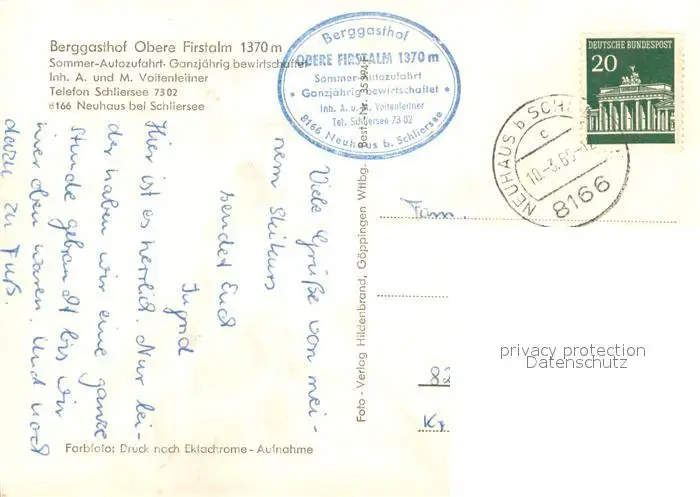 Berggasthof Obere Firstalm 1370 m
Sommer-Autozufahrt · Ganzjährig bewirtschaftet
Inh. A. und M. Voitenleitner
Telefon Schliersee 73 02
8166 Neuhaus bei Schliersee
Berggasthof
OBERE FIRSTALM 1370 m
Sommer-Autozufahrt
* Ganzjährig bewirtschaftet *
Inh. A. u. M. Voitenleitner
Tel. Schliersee 73 02
8166 Neuhaus b. Schliersee
DEUTSCHE BUNDESPOST
20
NEUHAUS b SCH
c
10.-3.65-1
8166
Viele Grüße von mei-
nem Skikurs
sendet Euch
Ingrid
Hier ist es herrlich. Nur lei-
der haben wir eine ganze
Stunde gebraucht bis wir
hier oben waren. Und noch
dazu zu Fuß.
Foto - Verlag Hildenbrand, Göppingen Wttbg.
Best.-Nr.
Fam.
82
K
privacy protection
Datenschutz
Farbfoto: Druck nach Ektachrome - Aufnahme